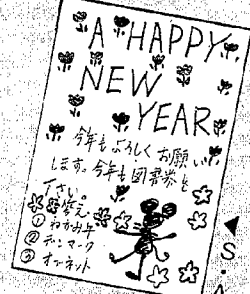 A HAPPY
NEW
YEAR
今年もよろしくお願い
します。今年も図書券を
下さい。
答え
① ねずみ年
② デンマーク
③ オーネット
S・A